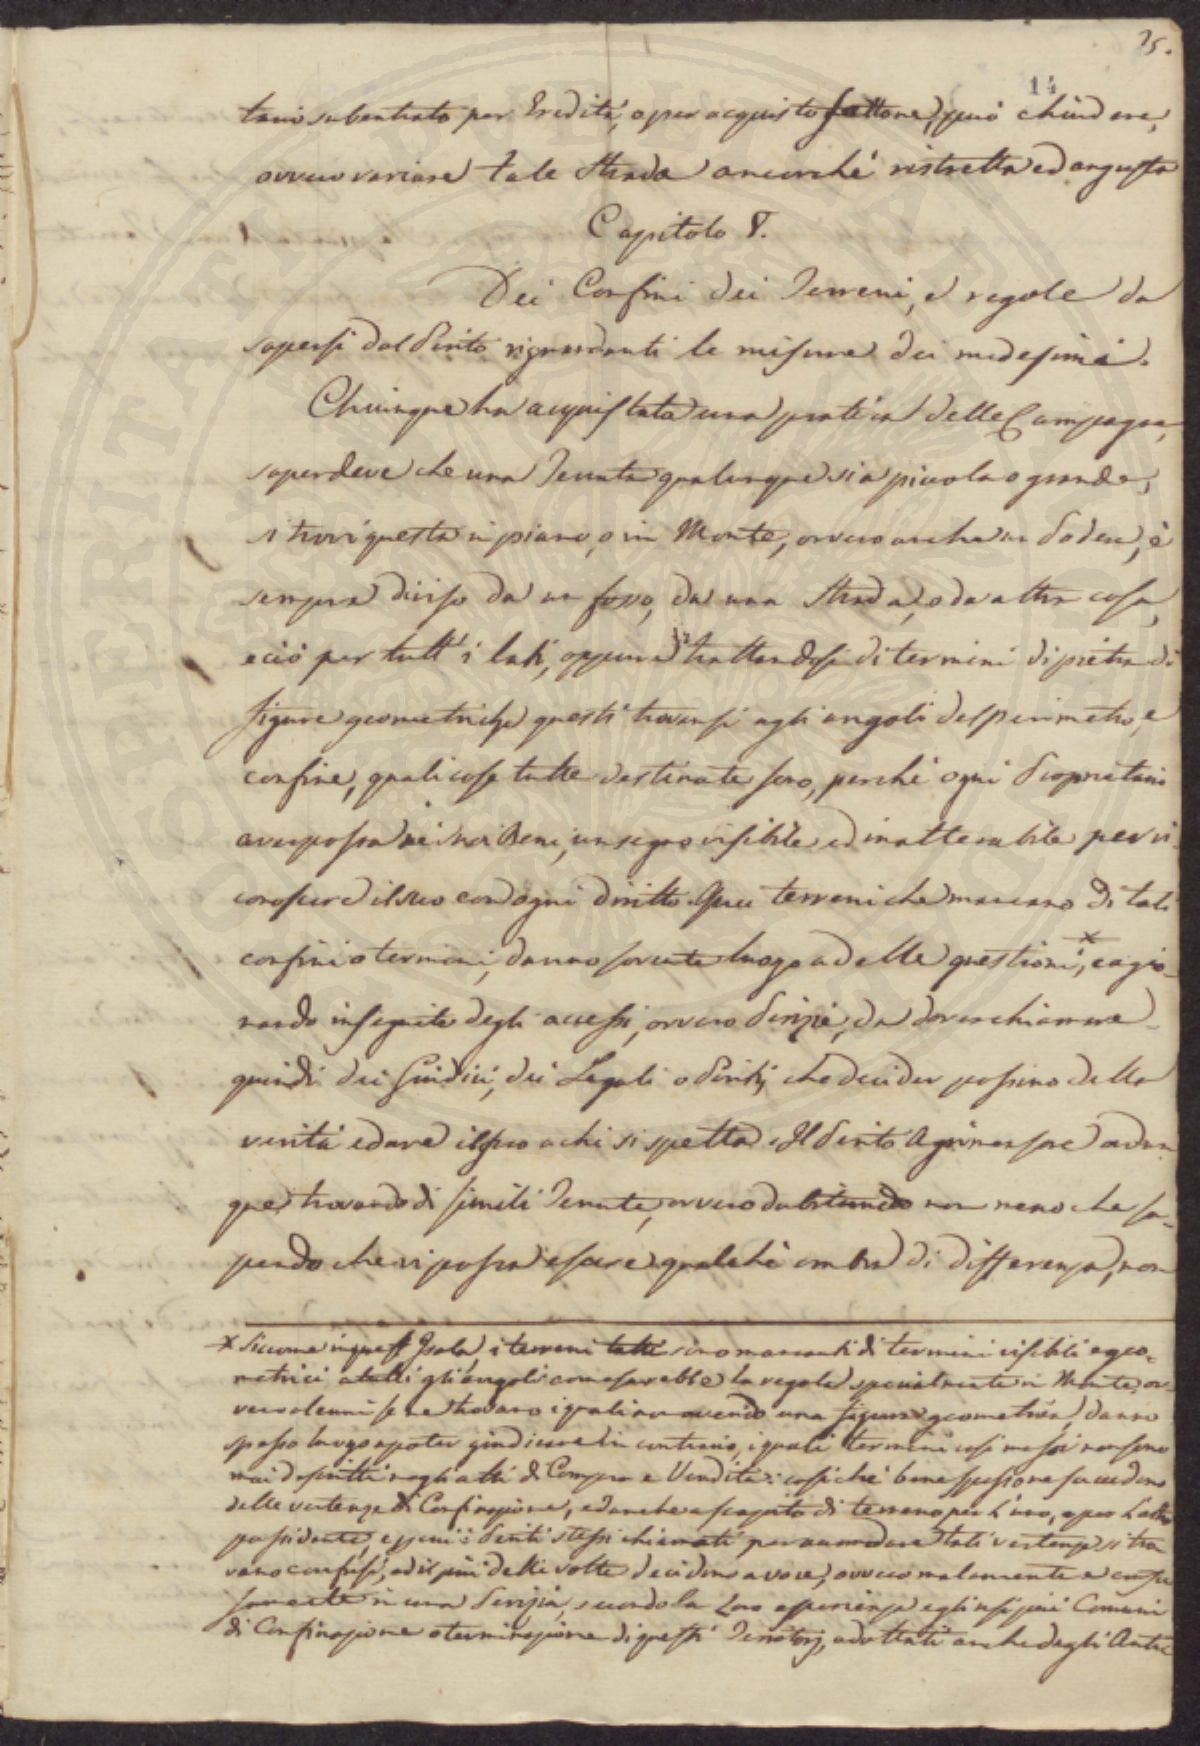 25.
14
tario subentrato per Eredità, o per acquisto fattone, può chiudere,
ovvero variare tale Strada ancorché ristretta ed angusta
Capitolo 8.
Dei Confini dei Terreni, e regole da
sapersi dal Perito riguardanti le misure dei medesimi.
Chiunque ha acquistata una pratica delle Campagne,
saper deve che una Tenuta qualunque sia piccola o grande,
si trovi questa in piano, o in Monte, ovvero anche un Podere, è
sempre diviso da un fosso, da una Strada, o da altra cosa,
e ciò per tutt'i lati, oppure trattandosi di termini di pietra di
figure geometriche questi trovansi agli angoli del perimetro, e
confine, quali cose tutte destinate sono, perché ogni Proprietario
aver possa nei suoi Beni, un segno visibile ed inalterabile per ri-
conoscere il suo con ogni diritto. Quei terreni che mancano di tali
confini o termini, danno sovente luogo a delle questioni,* cagio-
nando in seguito degli accessi, ovvero Perizie, da dover chiamare
quindi dei Giudici, dei Legali o Periti, che decider possino della
verità e dare il suo a chi si spetta. Il Perito Agrimensore adun-
que trovando di simili Tenute, ovvero dubitando non meno che sa-
pendo che vi possa essere qualche ombra di differenza, non
* Siccome in quest'Isola, i terreni tutti sono mancanti di termini visibili e geo-
metrici a tutti gli angoli come sarebbe la regola specialmente in Monte, ov-
vero alcuni se ne trovano i quali non avendo una figura geometrica, danno
spesso luogo a poter giudicare in contrario, i quali termini così messi non sono
mai descritti negli atti di Compra e Vendita: cosiché bene spesso ne succedono
delle vertenze di Confinazione, ed anche a scapito di terreno per l'uno, o per l'altro
possidente, e i Periti stessi chiamati per accomodare tali vertenze si tro-
vano confusi, ed il più delle volte decidono a voce, ovvero malamente e confu-
samente in una Perizia, secondo la loro esperienza e gli usi più Comuni
di Confinazione o terminazione di questi Territorj, adottati anche dagli Anti-